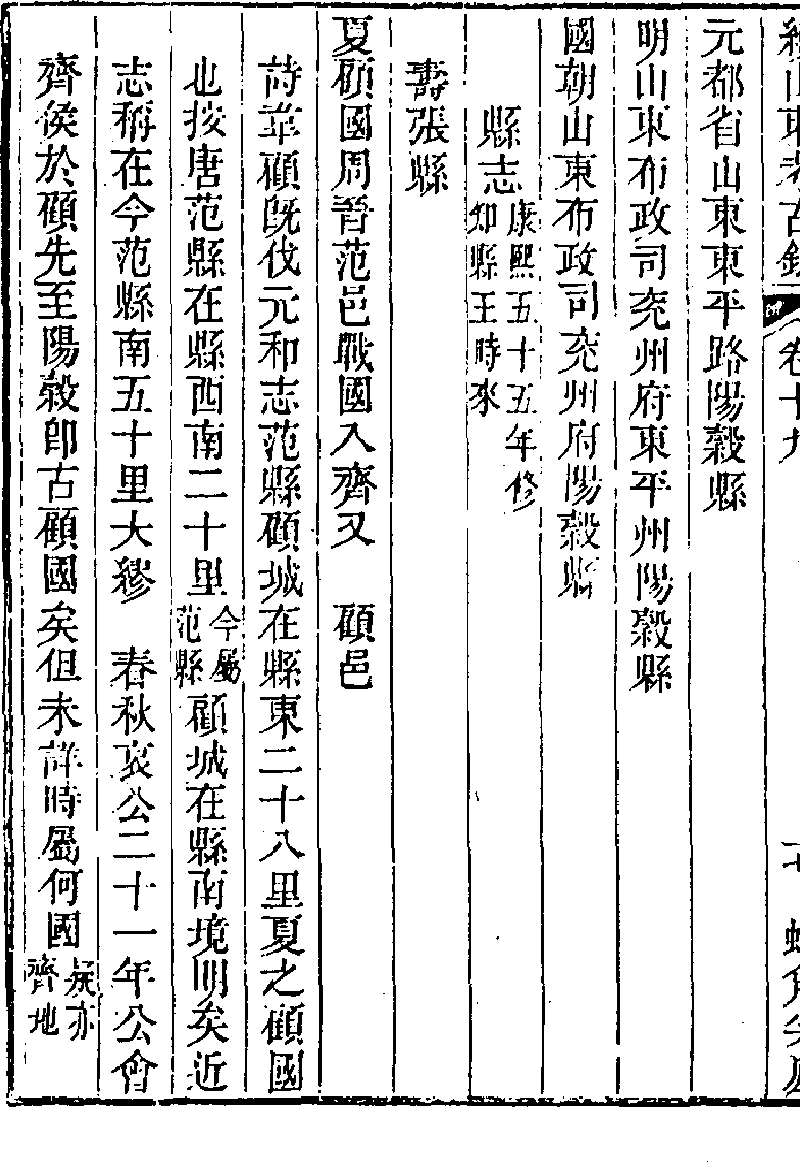 續山東考古錄 卷十九
元都省山東東平路陽穀縣
明山東布政司兖州府東平州陽穀縣
國朝山東布政司兖州府陽穀縣
縣志康熙五十五年修知縣王時來
壽張縣
夏顧國周晉范邑戰國入齊又 顧邑
詩韋顧旣伐元和志范縣顧城在縣東二十八里夏之顧國
也按唐范縣在縣西南二十里今屬范縣顧城在縣南境明矣近
志稱在今范縣南五十里大繆 春秋哀公二十一年公會
齊侯於顧先至陽穀卽古顧國矣但未詳時屬何國疑亦齊地